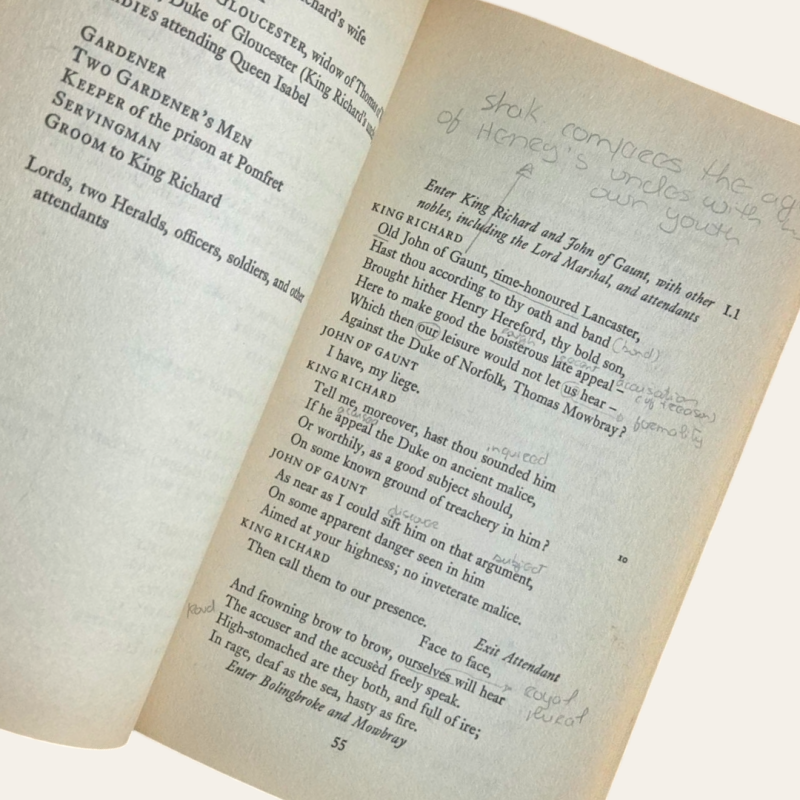 GLOUCESTER, widow of Thomas of
Duke of Gloucester (King Richard's
LADIES attending Queen Isabel
GARDENER
TWO GARDENER'S MEN
KEEPER of the prison at Pomfret
SERVINGMAN
GROOM to King Richard
Lords, two Heralds, officers, soldiers, and other
attendants
compares the
of Henry's uncles with
own youth
Enter King Richard and John of Gaunt, with other I.1
nobles, including the Lord Marshal, and attendants
KING RICHARD
Old John of Gaunt, time-honoured Lancaster,
Hast thou according to thy oath and band (bond)
Brought hither Henry Hereford, thy bold son,
Here to make good the boisterous late appeal –
accusation
Which then our leisure would not let us hear –
(of treason)
Against the Duke of Norfolk, Thomas Mowbray?
formality
JOHN OF GAUNT
I have, my liege.
KING RICHARD
Tell me, moreover, hast thou sounded him
If he appeal the Duke on ancient malice,
Or worthily, as a good subject should,
On some known ground of treachery in him?
JOHN OF GAUNT
As near as I could sift him on that argument,
subject
On some apparent danger seen in him 10
Aimed at your highness; no inveterate malice.
KING RICHARD
Then call them to our presence.
Exit Attendant
Face to face,
And frowning brow to brow, ourselves will hear
royal
The accuser and the accusèd freely speak.
High-stomached are they both, and full of ire;
In rage, deaf as the sea, hasty as fire.
Enter Bolingbroke and Mowbray
55